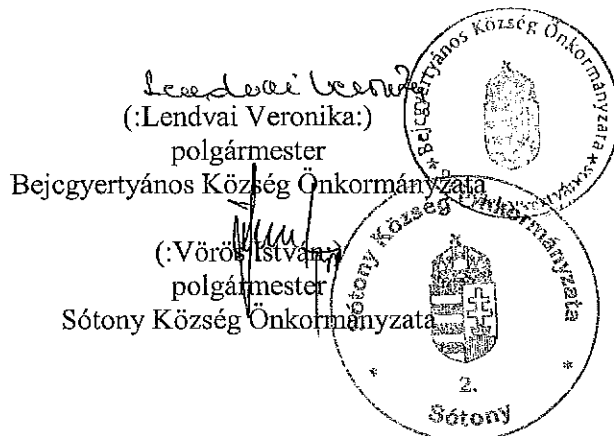 Lendvai Veronika
(:Lendvai Veronika:)
polgármester
Bejcgyertyános Község Önkormányzata
(:Vörös István:)
polgármester
Sótony Község Önkormányzata
* Bejcgyertyános Község Önkormányzata *
Sótony Község Önkormányzata
* *
2.
Sótony